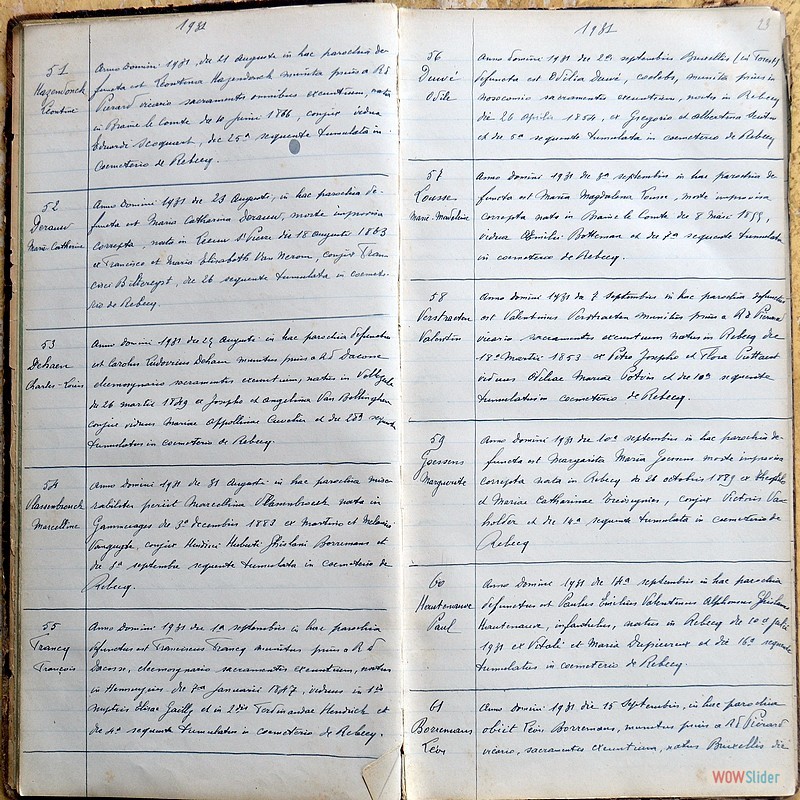 1931
51
Hazendonck
Léontine
Anno Domini 1931, die 21 Augusti in hac parochia de-
functa est Leontina Hazendonck munita prius a Rd
Pierard vicario sacramentis omnibus exeuntium, nata
in Braine le Comte die 10 junii 1866, conjux vidua
Eduardi Stocquart, die 25a sequente tumulata in
coemeterio de Rebecq.
52
Marie Catherine
Anno Domini 1931 die 23 Augusti, in hac parochia de-
functa est Maria Catharina morte improvisa
correpta, nata in Leeuw St Pierre die 18 augusti 1863
ex Francisco et Maria Elisabeth Van Nerom, conjux Fran-
cisci die 26 sequente tumulata in coemete-
rio de Rebecq.
53
Dehaen
Charles-Louis
Anno Domini 1931 die 29 Augusti in hac parochia defunctus
est Carolus Ludovicus Dehaen munitus prius a Rd Dacosse
eleemosynario sacramentis exeuntium, natus in
die 26 martii 1849 ex Josepho et Angelina Van Bellinghen
conjux viduus Mariae Appollinae et die sequente
tumulatus in coemeterio de Rebecq.
54
Vlassenbroeck
Marcelline
Anno Domini 1931 die 31 Augusti in hac parochia mise-
rabiliter periit Marcellina Vlassenbroeck nata in
Gammerages die 3a decembris 1883 ex Martino et Melania
conjux Henrici Huberti Ghislani Borremans et
die 3a septembris sequente tumulata in coemeterio de
Rebecq.
55
Francq
François
Anno Domini 1931 die 1a septembris in hac parochia
defunctus est Franciscus Francq munitus prius a Rd
Dacosse, eleemosynario sacramentis exeuntium, natus
in Hennuyères, die 7a Januarii 1847, viduus in 1is
nuptiis Elisae Gailly et in 2dis Ferdinandae Hendrick et
die 4a sequente tumulatus in coemeterio de Rebecq.
1931
23
56
Deuvé
Odile
Anno Domini 1931 die 2a septembris Bruxellis (in Forest)
defuncta est Odilia Deuvé, coelebs, munita prius in
nosocomio sacramentis exeuntium, nata in Rebecq
die 26 Aprilis 1854, ex Gregorio et Albertina
et die 5a sequente tumulata in coemeterio de Rebecq
57
Lousse
Marie-Madeleine
Anno Domini 1931 die 3a septembris in hac parochia de-
functa est Maria Magdalena Lousse, morte improvisa
correpta nata in Braine le Comte die 8 1855,
vidua Emilii Botteman et die 7a sequente tumulata
in coemeterio de Rebecq.
58
Verstraeten
Valentin
Anno Domini 1931 die 7 Septembris in hac parochia defunctus
est Valentinus Verstraeten munitus prius a Rd Pierard
vicario sacramentis exeuntium natus in Rebecq die
18a Martii 1853 ex Petro Josepho et Flora
viduus Odiliae Mariae Potvin et die 10a sequente
tumulatus in coemeterio de Rebecq.
59
Goessens
Marguerite
Anno Domini 1931 die 10a septembris in hac parochia de-
functa est Margarita Maria Goessens morte improvisa
correpta nata in Rebecq die 26 octobris 1889 ex Theophilo
et Mariae Catharinae conjux Victoris Van-
holder et die 14a sequente tumulata in coemeterio de
Rebecq
60
Hautenauve
Paul
Anno Domini 1931 die 14a septembris in hac parochia
defunctus est Paulus Emilius Valentinus Alphonsus Ghislanus
Hautenauve, infantulus, natus in Rebecq die 10a julii
1931 ex Vitali et Maria Dupireux et die 16a sequente
tumulatus in coemeterio de Rebecq.
61
Borremans
Léon
Anno Domini 1931 die 15 Septembris, in hac parochia
obiit Léon Borremans, munitus prius a Rd Pierard
vicario, sacramentis exeuntium, natus Bruxellis die
WOWSlider